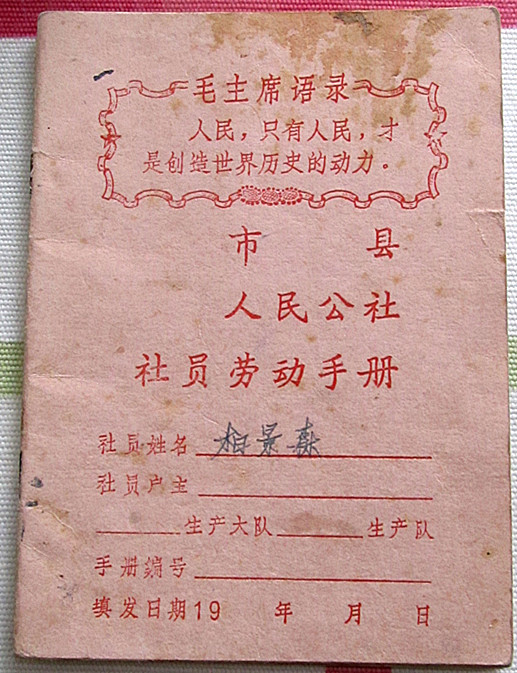 毛主席语录
人民，只有人民，才
是创造世界历史的动力。
市 县
人民公社
社员劳动手册
社员姓名 柏景森
社员户主
生产大队 生产队
手册编号
填发日期19 年 月 日